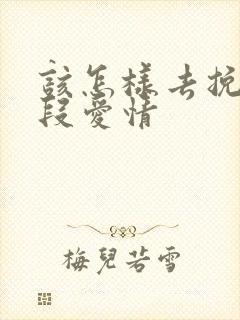 该怎樣去挽
段愛情
梅兒若雪